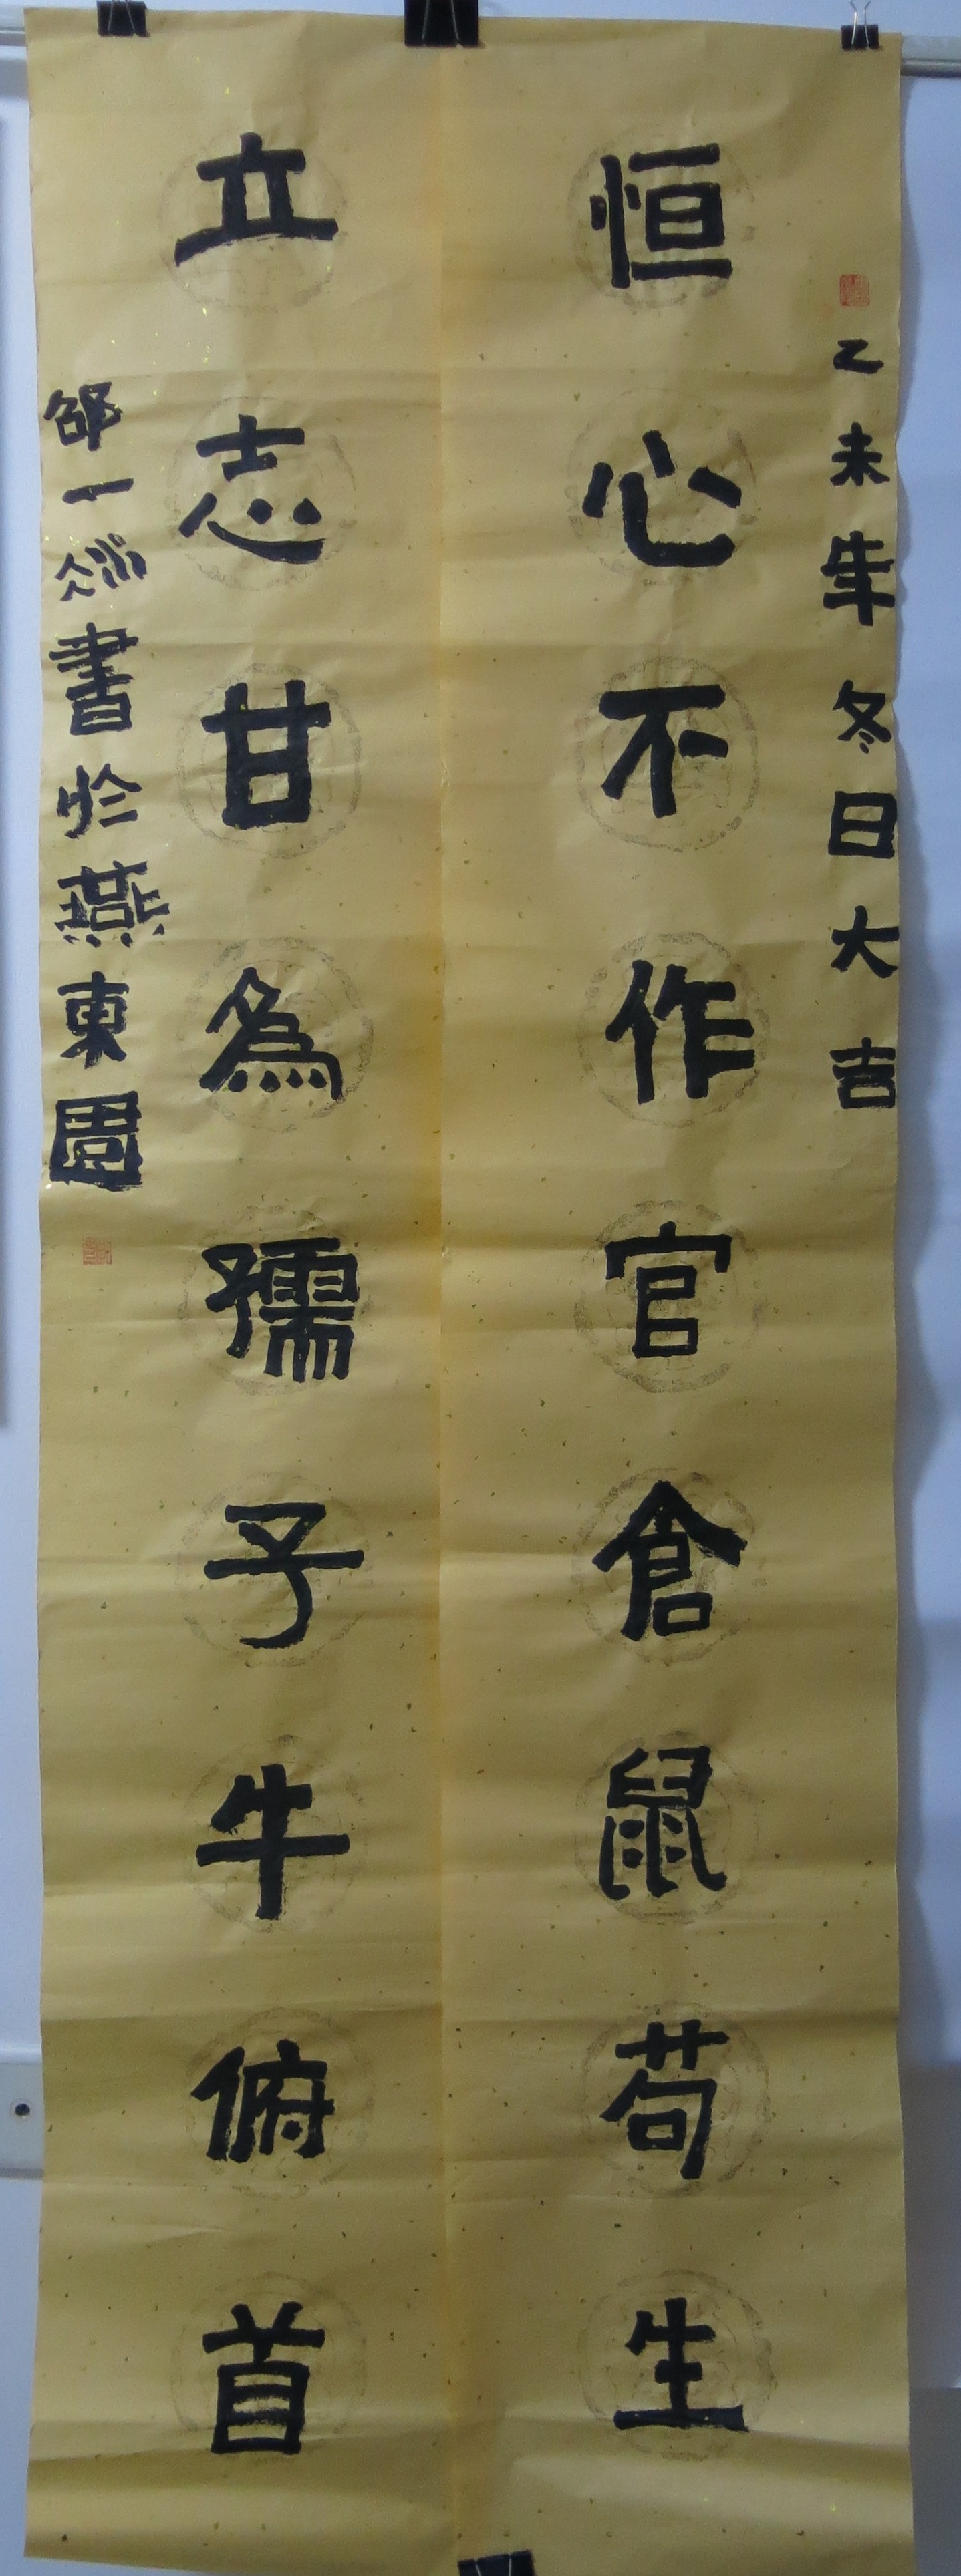 乙未年冬日大吉
恒心不作官倉鼠苟生
立志甘為孺子牛俯首
邵一 書於燕東園